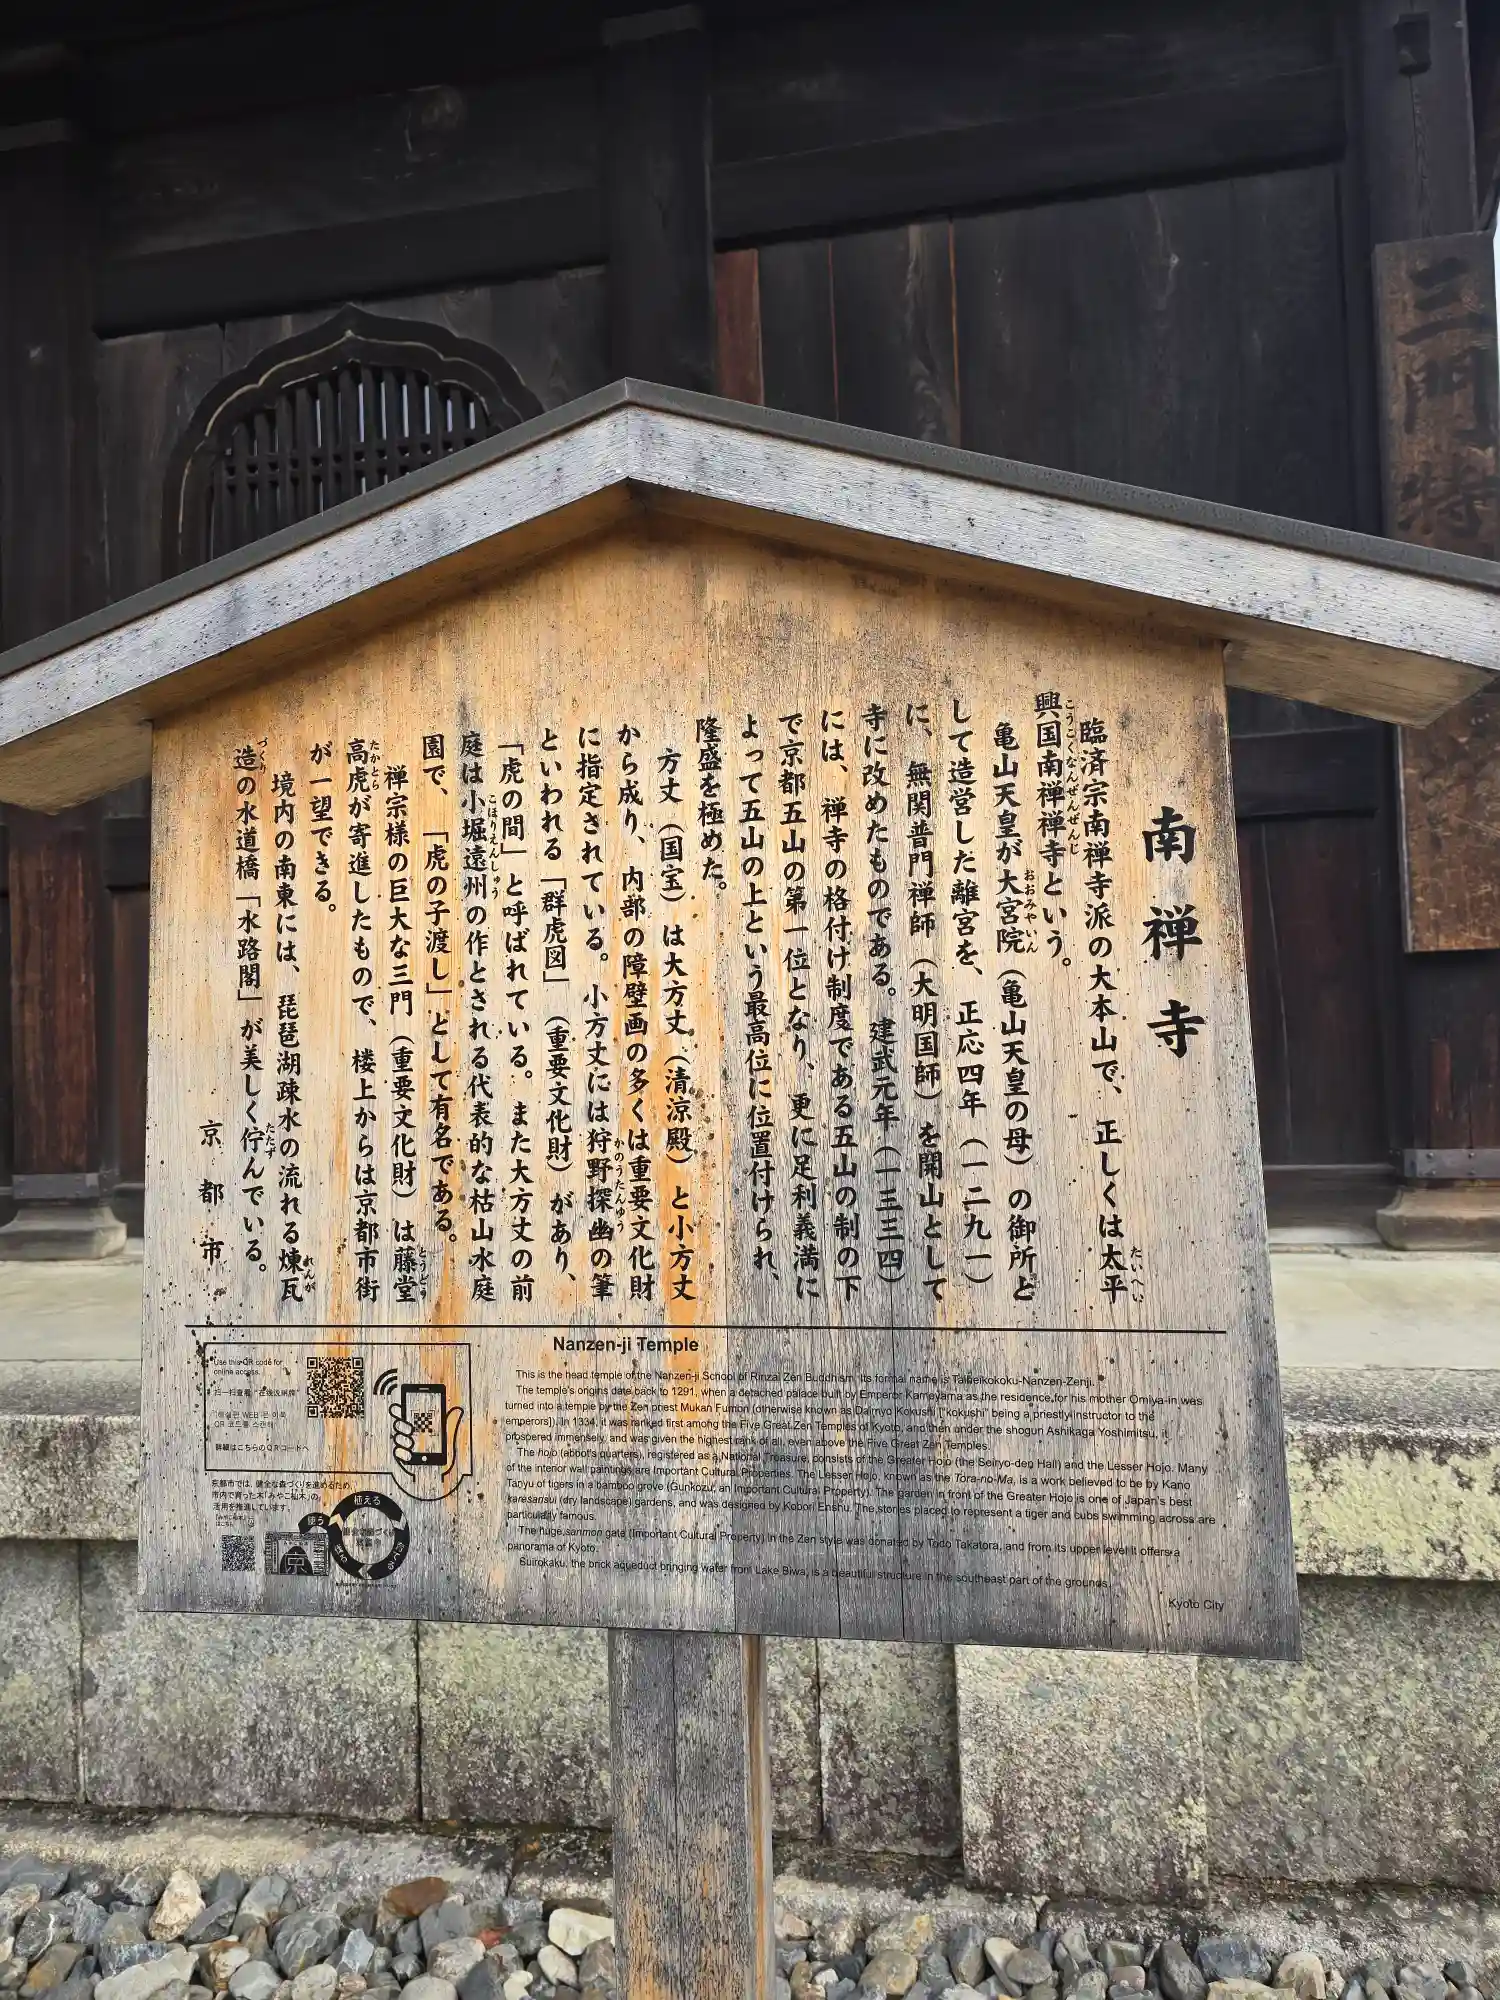 南禅寺
臨済宗南禅寺派の大本山で、正しくは太平
たいへい
興国南禅禅寺という。
こうこくなんぜんぜんじ
亀山天皇が大宮院（亀山天皇の母）の御所と
おおみやいん
して造営した離宮を、正応四年（一二九一）
に、無関普門禅師（大明国師）を開山として
寺に改めたものである。建武元年（一三三四）
には、禅寺の格付け制度である五山の制の下
で京都五山の第一位となり、更に足利義満に
よって五山の上という最高位に位置付けられ、
隆盛を極めた。
方丈（国宝）は大方丈（清涼殿）と小方丈
から成り、内部の障壁画の多くは重要文化財
に指定されている。小方丈には狩野探幽の筆
かのうたんゆう
といわれる「群虎図」（重要文化財）があり、
「虎の間」と呼ばれている。また大方丈の前
庭は小堀遠州の作とされる代表的な枯山水庭
こぼりえんしゅう
園で、「虎の子渡し」として有名である。
禅宗様の巨大な三門（重要文化財）は藤堂
とうどう
高虎が寄進したもので、楼上からは京都市街
たかとら
が一望できる。
境内の南東には、琵琶湖疎水の流れる煉瓦
れんが
造の水道橋「水路閣」が美しく佇んでいる。
づくり
たたず
京都市
Nanzen-ji Temple
This is the head temple of the Nanzen-ji School of Rinzai Zen Buddhism. Its formal name is Taiheikokoku-Nanzen-Zenji.
The temple's origins date back to 1291, when a detached palace built by Emperor Kameyama as the residence for his mother Omiya-in was
turned into a temple by the Zen priest Mukan Fumon (otherwise known as Daimyo Kokushi ["kokushi" being a priestly instructor to the
emperors]). In 1334, it was ranked first among the Five Great Zen Temples of Kyoto, and then under the shogun Ashikaga Yoshimitsu, it
prospered immensely, and was given the highest rank of all, even above the Five Great Zen Temples.
The hojo (abbot's quarters), registered as a National Treasure, consists of the Greater Hojo (the Seiryo-den Hall) and the Lesser Hojo. Many
of the interior wall paintings are Important Cultural Properties. The Lesser Hojo, known as the Tora-no-Ma, is a work believed to be by Kano
Tanyu of tigers in a bamboo grove (Gunkozu, an Important Cultural Property). The garden in front of the Greater Hojo is one of Japan's best
karesansui (dry landscape) gardens, and was designed by Kobori Enshu. The stones placed to represent a tiger and cubs swimming across are
particularly famous.
The huge sanmon gate (Important Cultural Property) in the Zen style was donated by Todo Takatora, and from its upper level it offers a
panorama of Kyoto.
Suirokaku, the brick aqueduct bringing water from Lake Biwa, is a beautiful structure in the southeast part of the grounds.
Kyoto City
Use this QR code for
online access.
詳細はこちらのQRコードへ
京都市では、健全な森づくりを進めるため、
市内で育った木「みやこ杣木」の
活用を推進しています。
植える
使う
京
三門